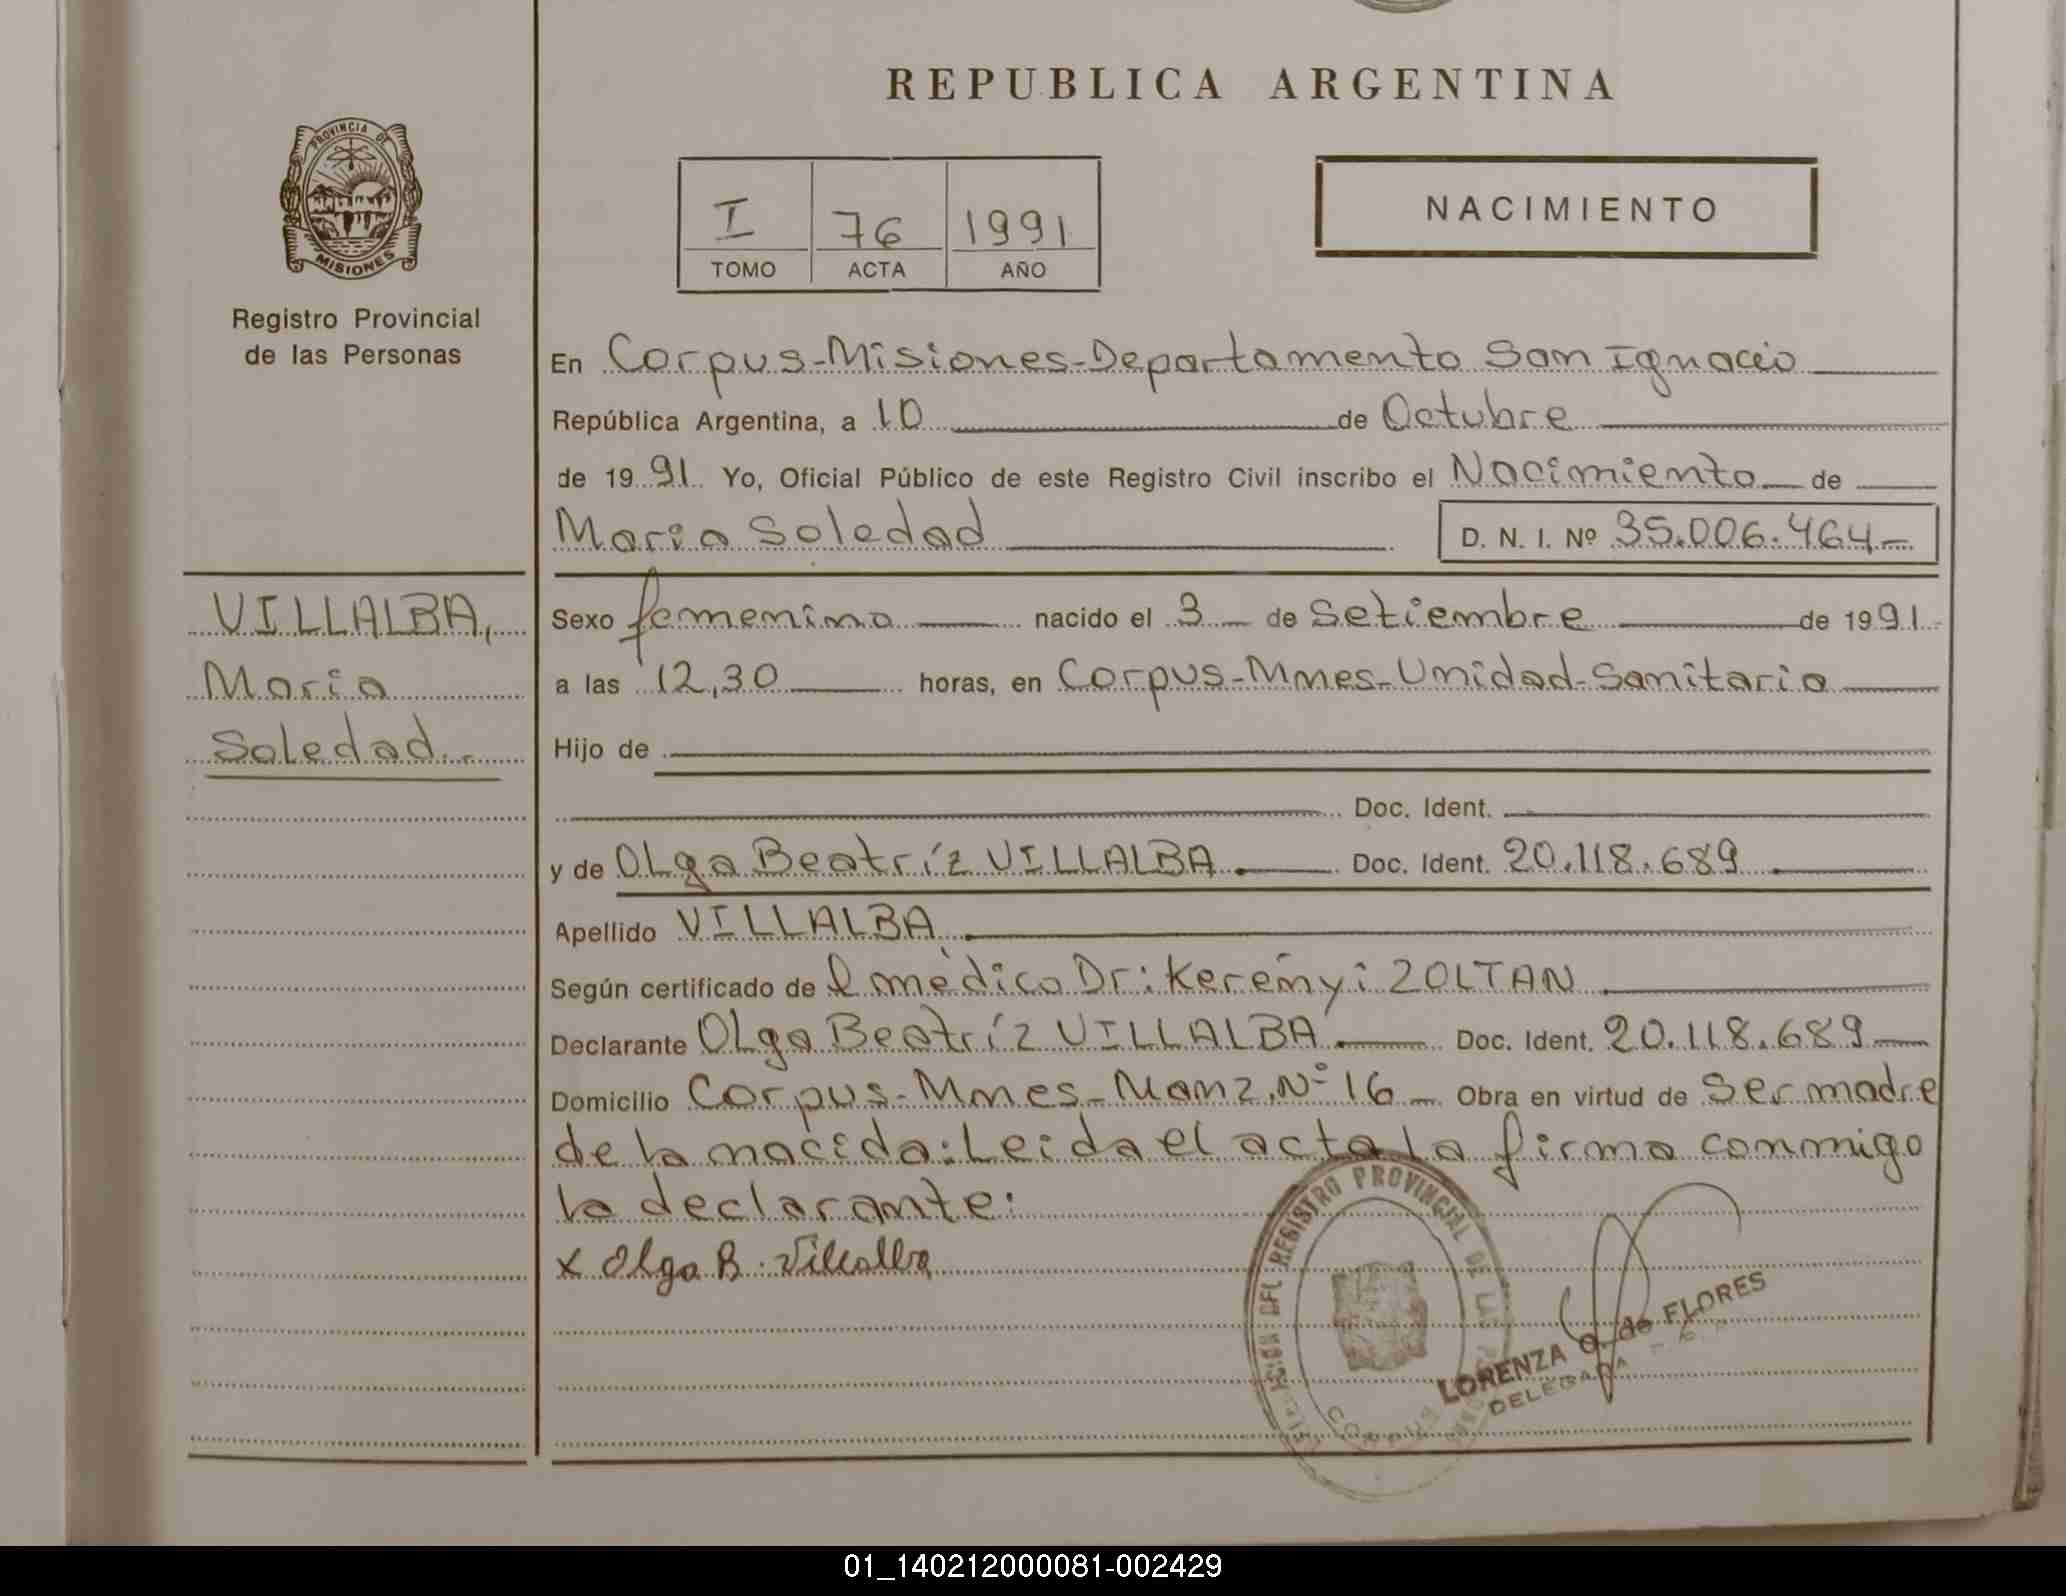 REPUBLICA ARGENTINA
PROVINCIA DE
MISIONES
Registro Provincial
de las Personas
I 76 1991
TOMO ACTA AÑO
NACIMIENTO
En Corpus-Misiones-Departamento San Ignacio
República Argentina, a 10 de Octubre
de 1991 Yo, Oficial Público de este Registro Civil inscribo el Nacimiento de
Maria Soledad D. N. I. Nº 35.006.464-
VILLALBA,
Maria
Soledad
Sexo femenino nacido el 3 de Setiembre de 1991
a las 12,30 horas, en Corpus-Mnes-Unidad-Sanitaria
Hijo de
Doc. Ident.
y de Olga Beatríz VILLALBA. Doc. Ident. 20.118.689
Apellido VILLALBA.
Según certificado de l médico Dr: Kerenyi ZOLTAN
Declarante Olga Beatríz VILLALBA. Doc. Ident. 20.118.689
Domicilio Corpus-Mnes-Manz.Nº 16 Obra en virtud de ser madre
de la nacida: Leida el acta la firma conmigo
la declarante:
x Olga B. Villalba
DEL REGISTRO PROVINCIAL DE LAS
LORENZA G. de FLORES
DELEGADA
01_140212000081-002429